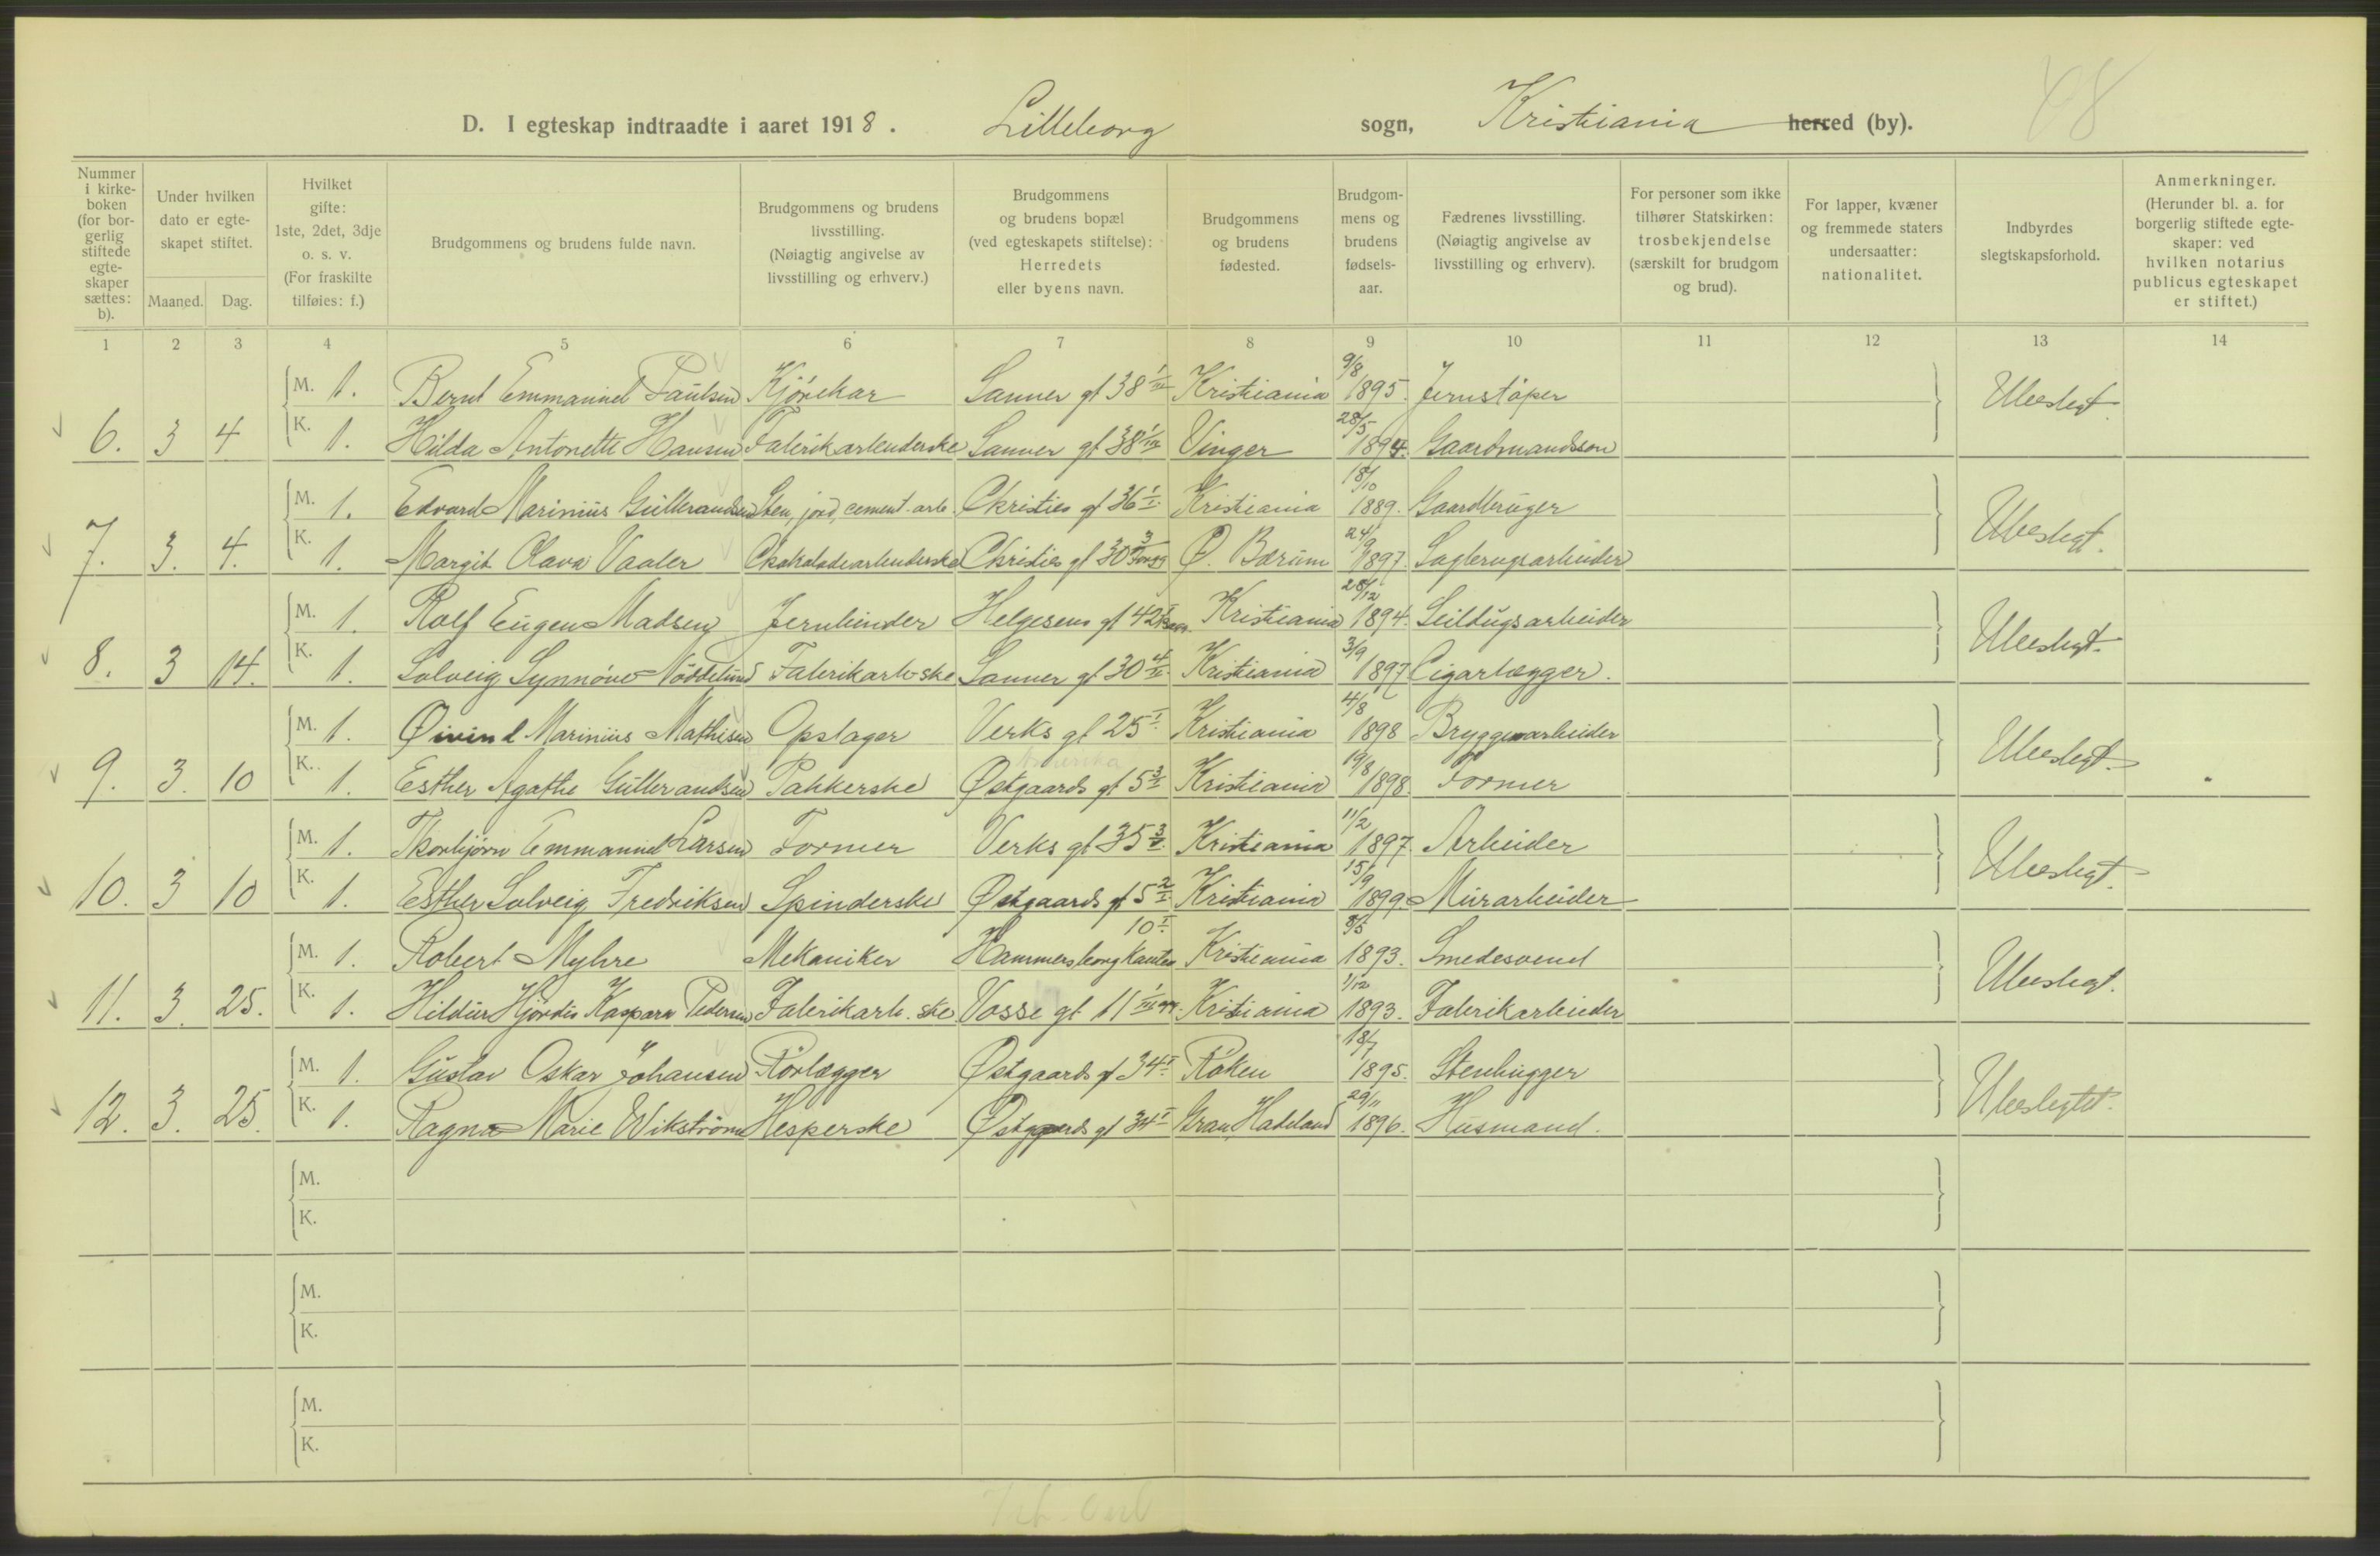 D. I egteskap indtraadte i aaret 1918. Lilleborg sogn, Kristiania herred (by). 48
Nummer i kirkeboken (for borgerlig stiftede egteskaper sættes: b).
Under hvilken dato er egteskapet stiftet.
Maaned. Dag.
Hvilket gifte: 1ste, 2det, 3dje o. s. v. (For fraskilte tilføies: f.)
Brudgommens og brudens fulde navn.
Brudgommens og brudens livsstilling. (Nøiagtig angivelse av livsstilling og erhverv.)
Brudgommens og brudens bopæl (ved egteskapets stiftelse): Herredets eller byens navn.
Brudgommens og brudens fødested.
Brudgommens og brudens fødselsaar.
Fædrenes livsstilling. (Nøiagtig angivelse av livsstilling og erhverv).
For personer som ikke tilhører Statskirken: trosbekjendelse (særskilt for brudgom og brud).
For lapper, kvæner og fremmede staters undersaatter: nationalitet.
Indbyrdes slegtskapsforhold.
Anmerkninger. (Herunder bl. a. for borgerlig stiftede egteskaper: ved hvilken notarius publicus egteskapet er stiftet.)
1 2 3 4 5 6 7 8 9 10 11 12 13 14
M. 1. Bernt Emmanuel Paulsen Kjørekar Sanner gt 38 Kristiania 9/8 1895. Jernstøper Ubeslegt.
6. 3 4 K. 1. Hilda Antonette Hansen Fabrikarbeiderske Sanner gt 38 Vinger 28/5 1894. Gaardmandssøn
M. 1. Edvard Marinius Gulbrandsen Sten, jord, cement.arb. Christies gt 36 Kristiania 18/10 1889. Gaardbruger Ubeslegt.
7. 3. 4. K. 1. Margit Olava Vaaler Chokoladearbeiderske Christies gt 30 Ø. Bærum 24/9 1897. Sagbrugsarbeider
M. 1. Rolf Eugen Madsen Jernbinder Helgesens gt 42 Kristiania 28/12 1894. Seildugsarbeider Ubeslegt.
8. 3 14. K. 1. Solveig Synnøve Nøddelund Fabrikarb-ske Sanner gt 30 Kristiania 3/9 1897 Cigarlægger.
M. 1. Øivind Marinius Mathisen Opslager Verks gt 25 Kristiania 4/8 1898 Bryggeriarbeider Ubeslegt.
9. 3. 10 K. 1. Esther Agathe Gulbrandsen Pakkerske Østgaards gt 5 Kristiania 19/8 1898. Former
M. 1. Thorbjørn Emmanuel Larsen Former Verks gt 35 Kristiania 11/2 1897. Arbeider Ubeslegt.
10. 3 10 K. 1. Esther Solveig Fredriksen Spinderske Østgaards gt 5 Kristiania 15/9 1899. Murarbeider
M. 1. Robert Myhre Mekaniker Hammersborgkanten 10 Kristiania 8/5 1893. Smedesvend Ubeslegt.
11. 3. 25. K. 1. Hildur Hjørdis Kaspara Pedersen Fabrikarb. ske Vosse gt 11 Kristiania 1/12 1893. Fabrikarbeider
M. 1. Gustav Oskar Johansen Rørlægger Østgaards gt 34 Røken 18/7 1895. Stenhugger Ubeslegtet.
12. 3. 25. K. 1. Ragna Marie Wikstrøm Hesperske Østgaards gt 34 Gran, Hadeland 29/11 1896. Husmand.
M.
K.
M.
K.
M.
K.